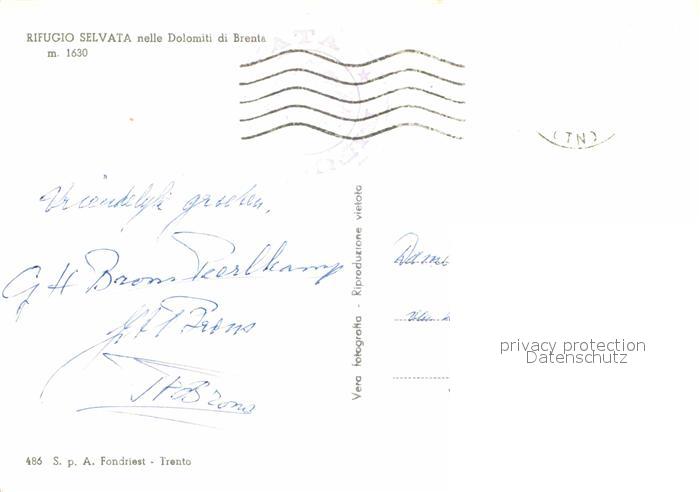 RIFUGIO SELVATA nelle Dolomiti di Brenta
m. 1630
ATA
(TN)
Vriendelijke groeten,
G H Brons Peerlkamp
Brons
Brons
Vera fotografia - Riproduzione vietata
privacy protection
Datenschutz
486 S. p. A. Fondriest - Trento